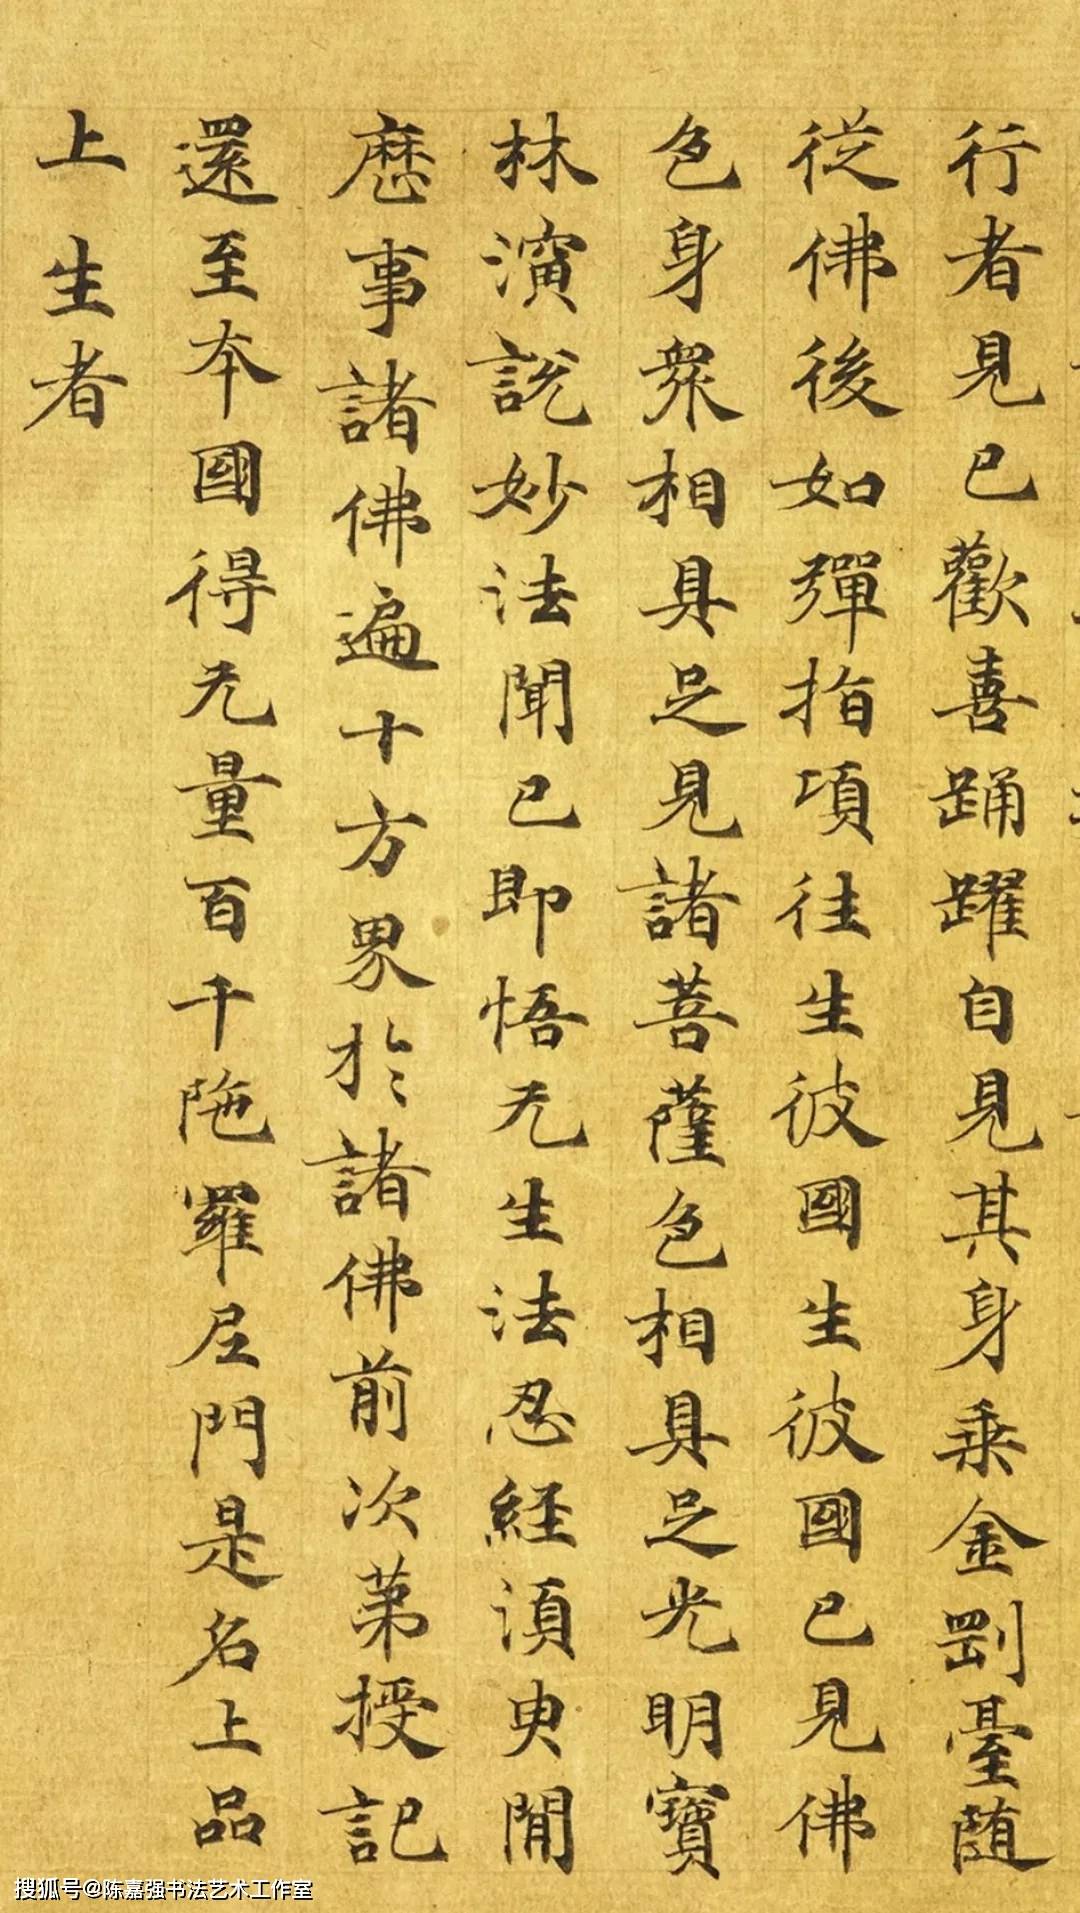 行者見已歡喜踊躍自見其身乘金剛臺随
從佛後如彈指頃往生彼國生彼國已見佛
色身衆相具足見諸菩薩色相具足光明寶
林演說妙法聞已即悟无生法忍經湏臾閒
歷事諸佛遍十方界於諸佛前次苐授記
還至本國得无量百千陁羅尼門是名上品
上生者
搜狐号@陈嘉强书法艺术工作室